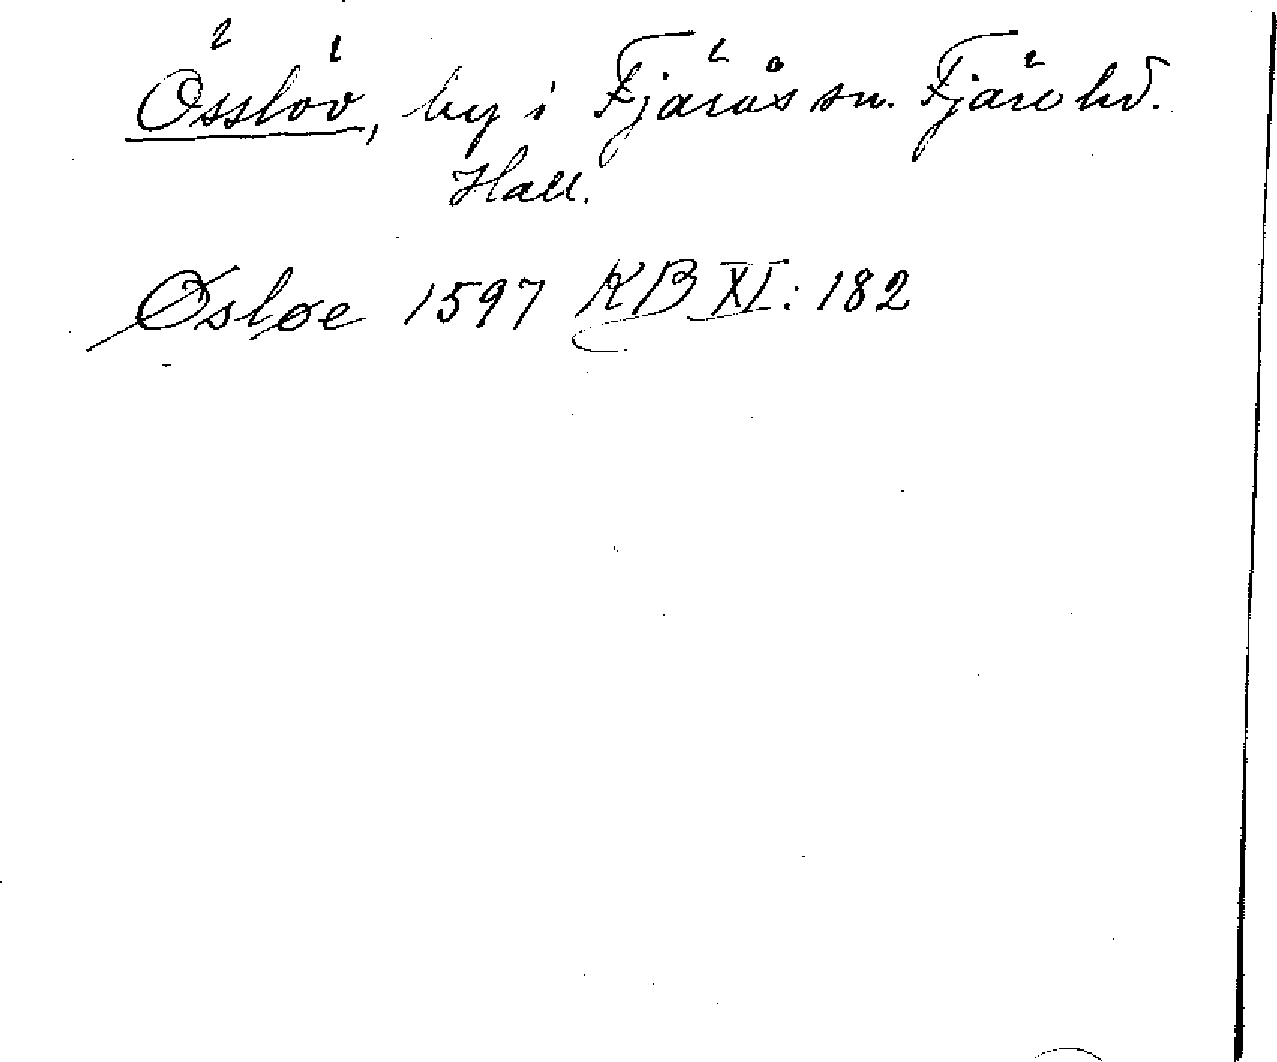 Össlöv, by i Fjärås sn. Fjäre hd.
Hall.
Øsløe 1597 KB XI: 182